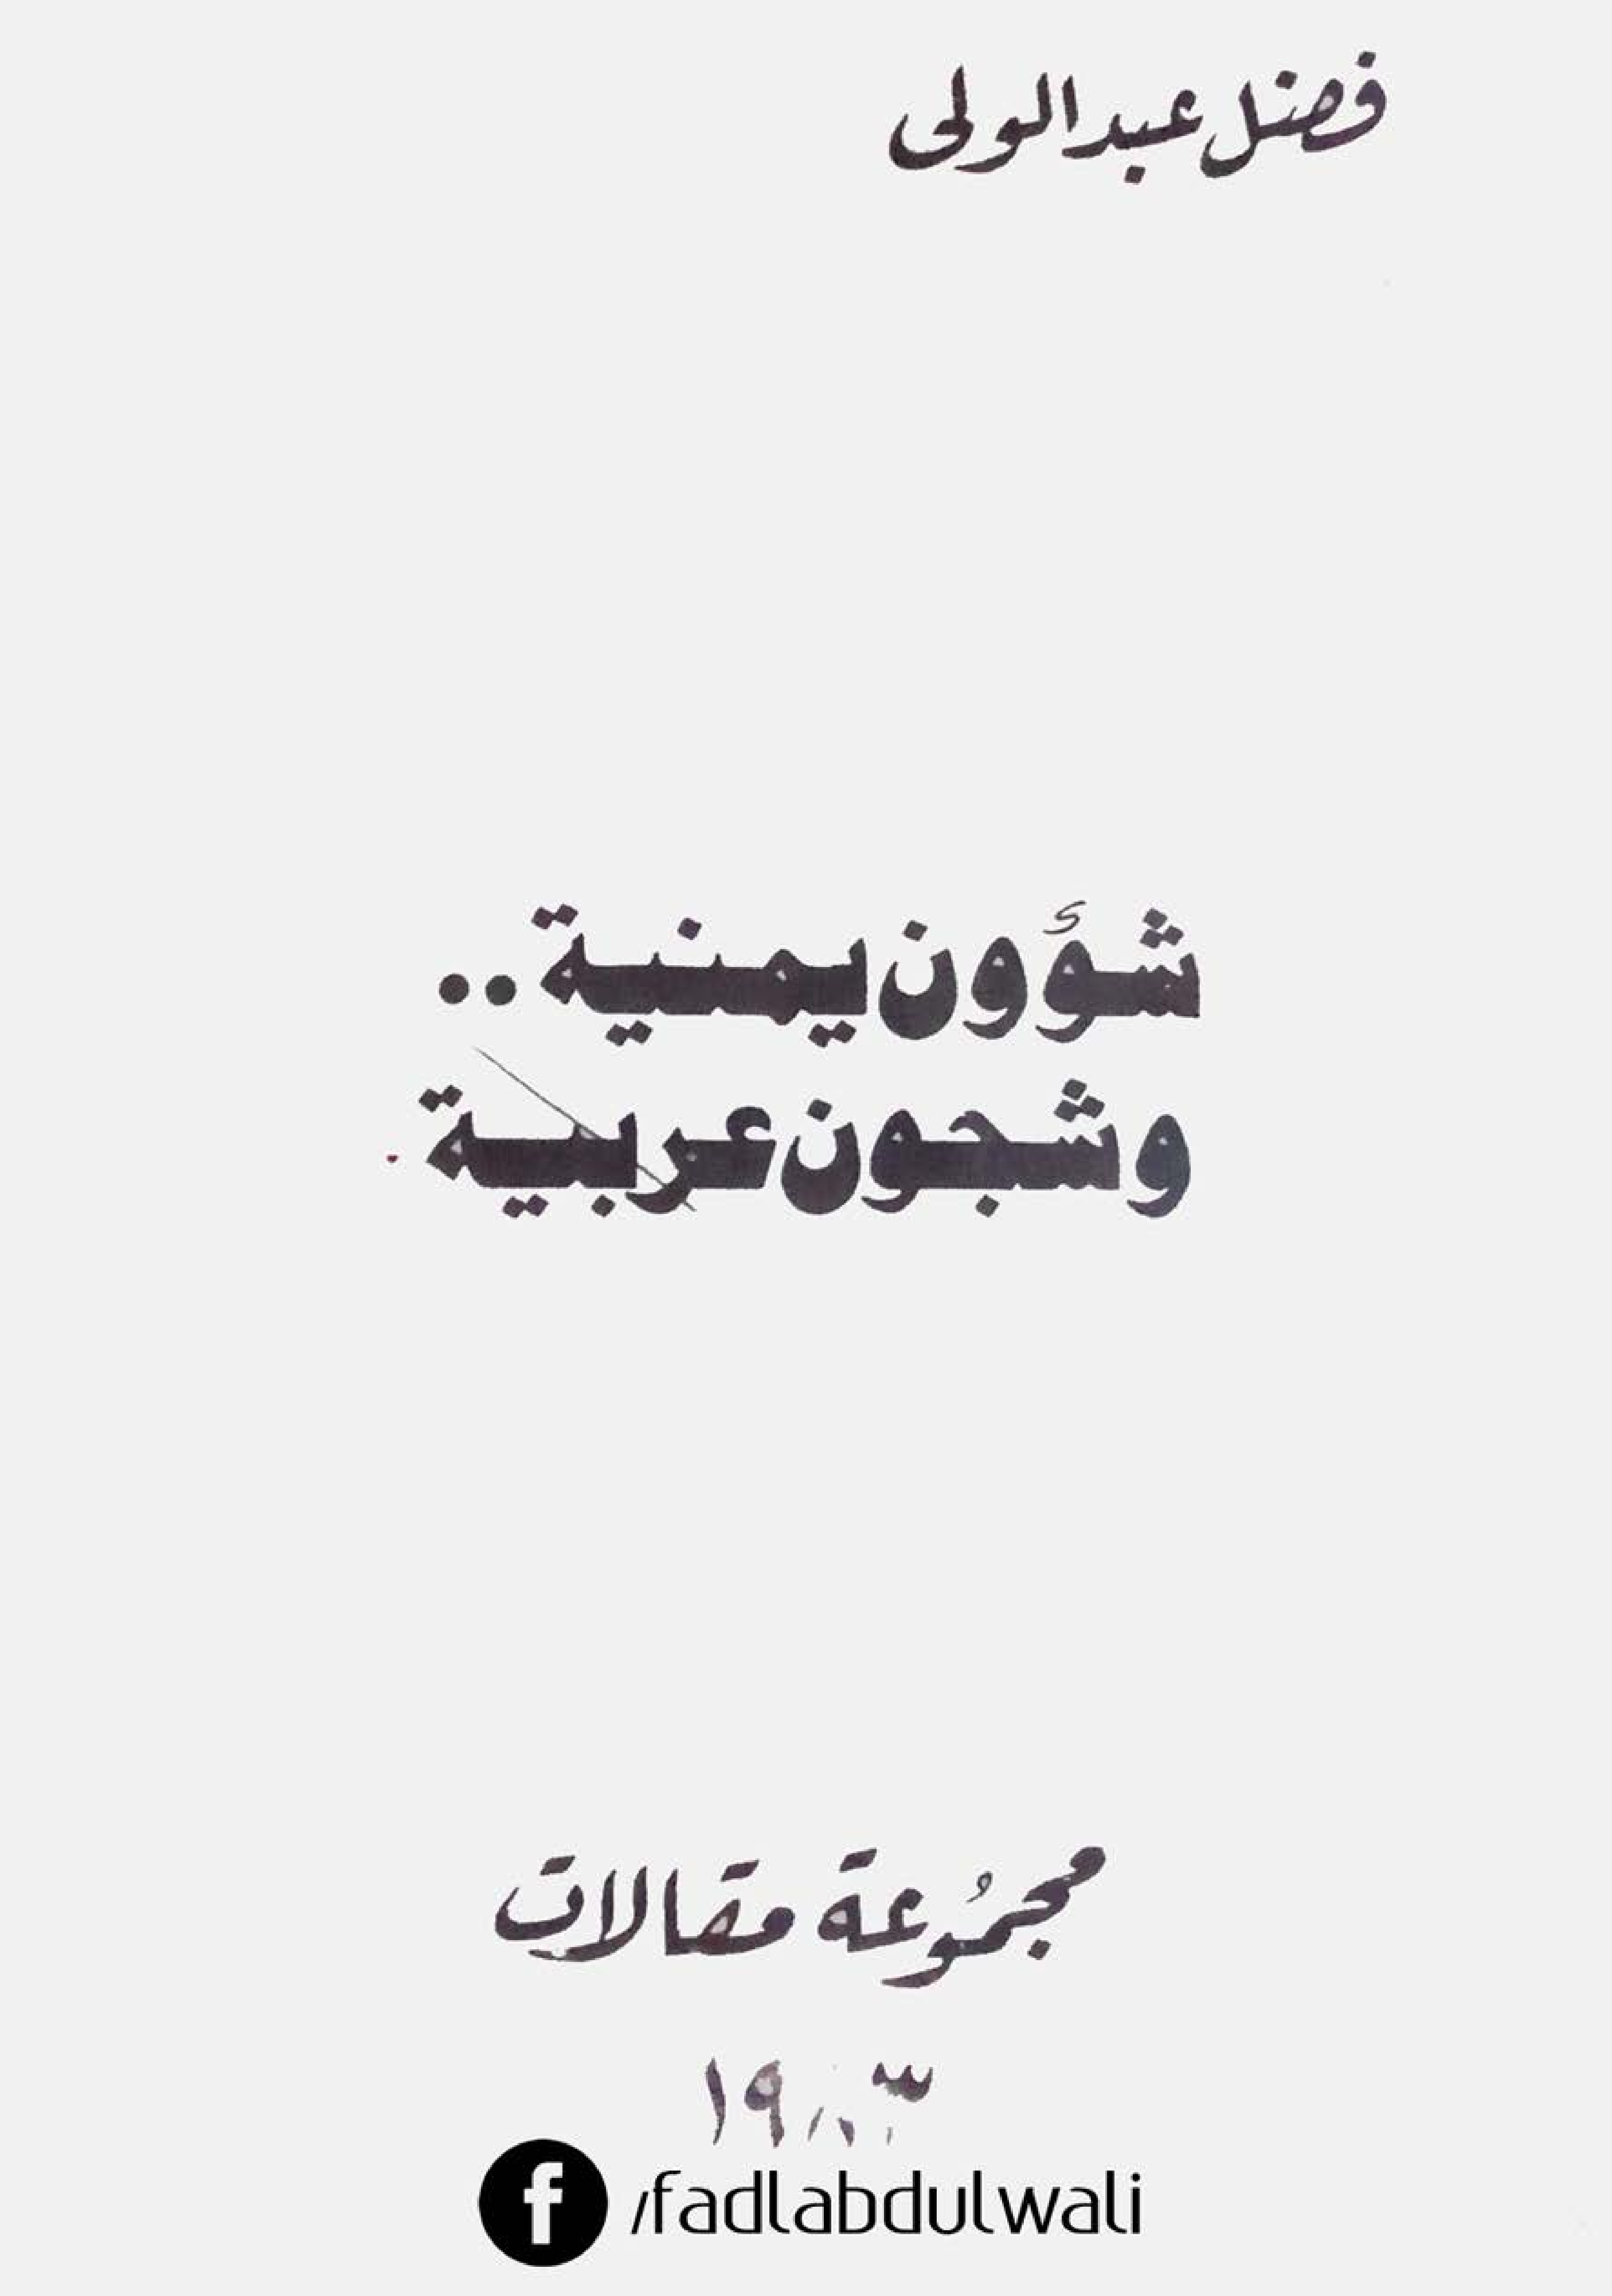 فضل عبد الولى
شؤون يمنية ..
وشجون عربية
مجمُوعة مقالات
١٩٨٣
/fadlabdulwali